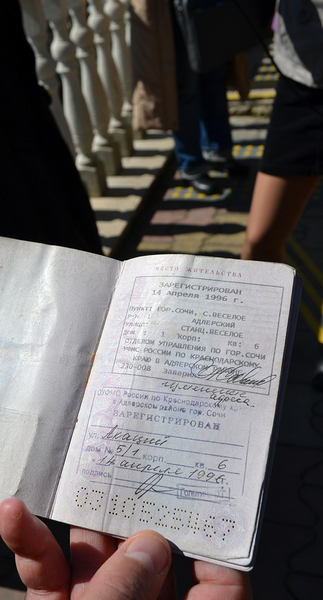 МЕСТО ЖИТЕЛЬСТВА
ЗАРЕГИСТРИРОВАН
14 апреля 1996 г.
ПУНКТ: ГОР.СОЧИ, С.ВЕСЕЛОЕ
Р-Н: АДЛЕРСКИЙ
УЛИЦА: СТАНЦ.ВЕСЕЛОЕ
ДОМ: 1 КОРП: КВ: 6
ОТДЕЛОМ УПРАВЛЕНИЯ ПО ГОР.СОЧИ
РОССИИ ПО КРАСНОДАРСКОМУ
КРАЮ В АДЛЕРСКОМ РАЙОНЕ
230-008 Заверил
изменение
адреса
России по Краснодарскому
в Адлерском районе гор. Сочи
ЗАРЕГИСТРИРОВАН
ул. Акаций
дом № 5/1 корп. кв. 6
14 апреля 1996г.
подпись